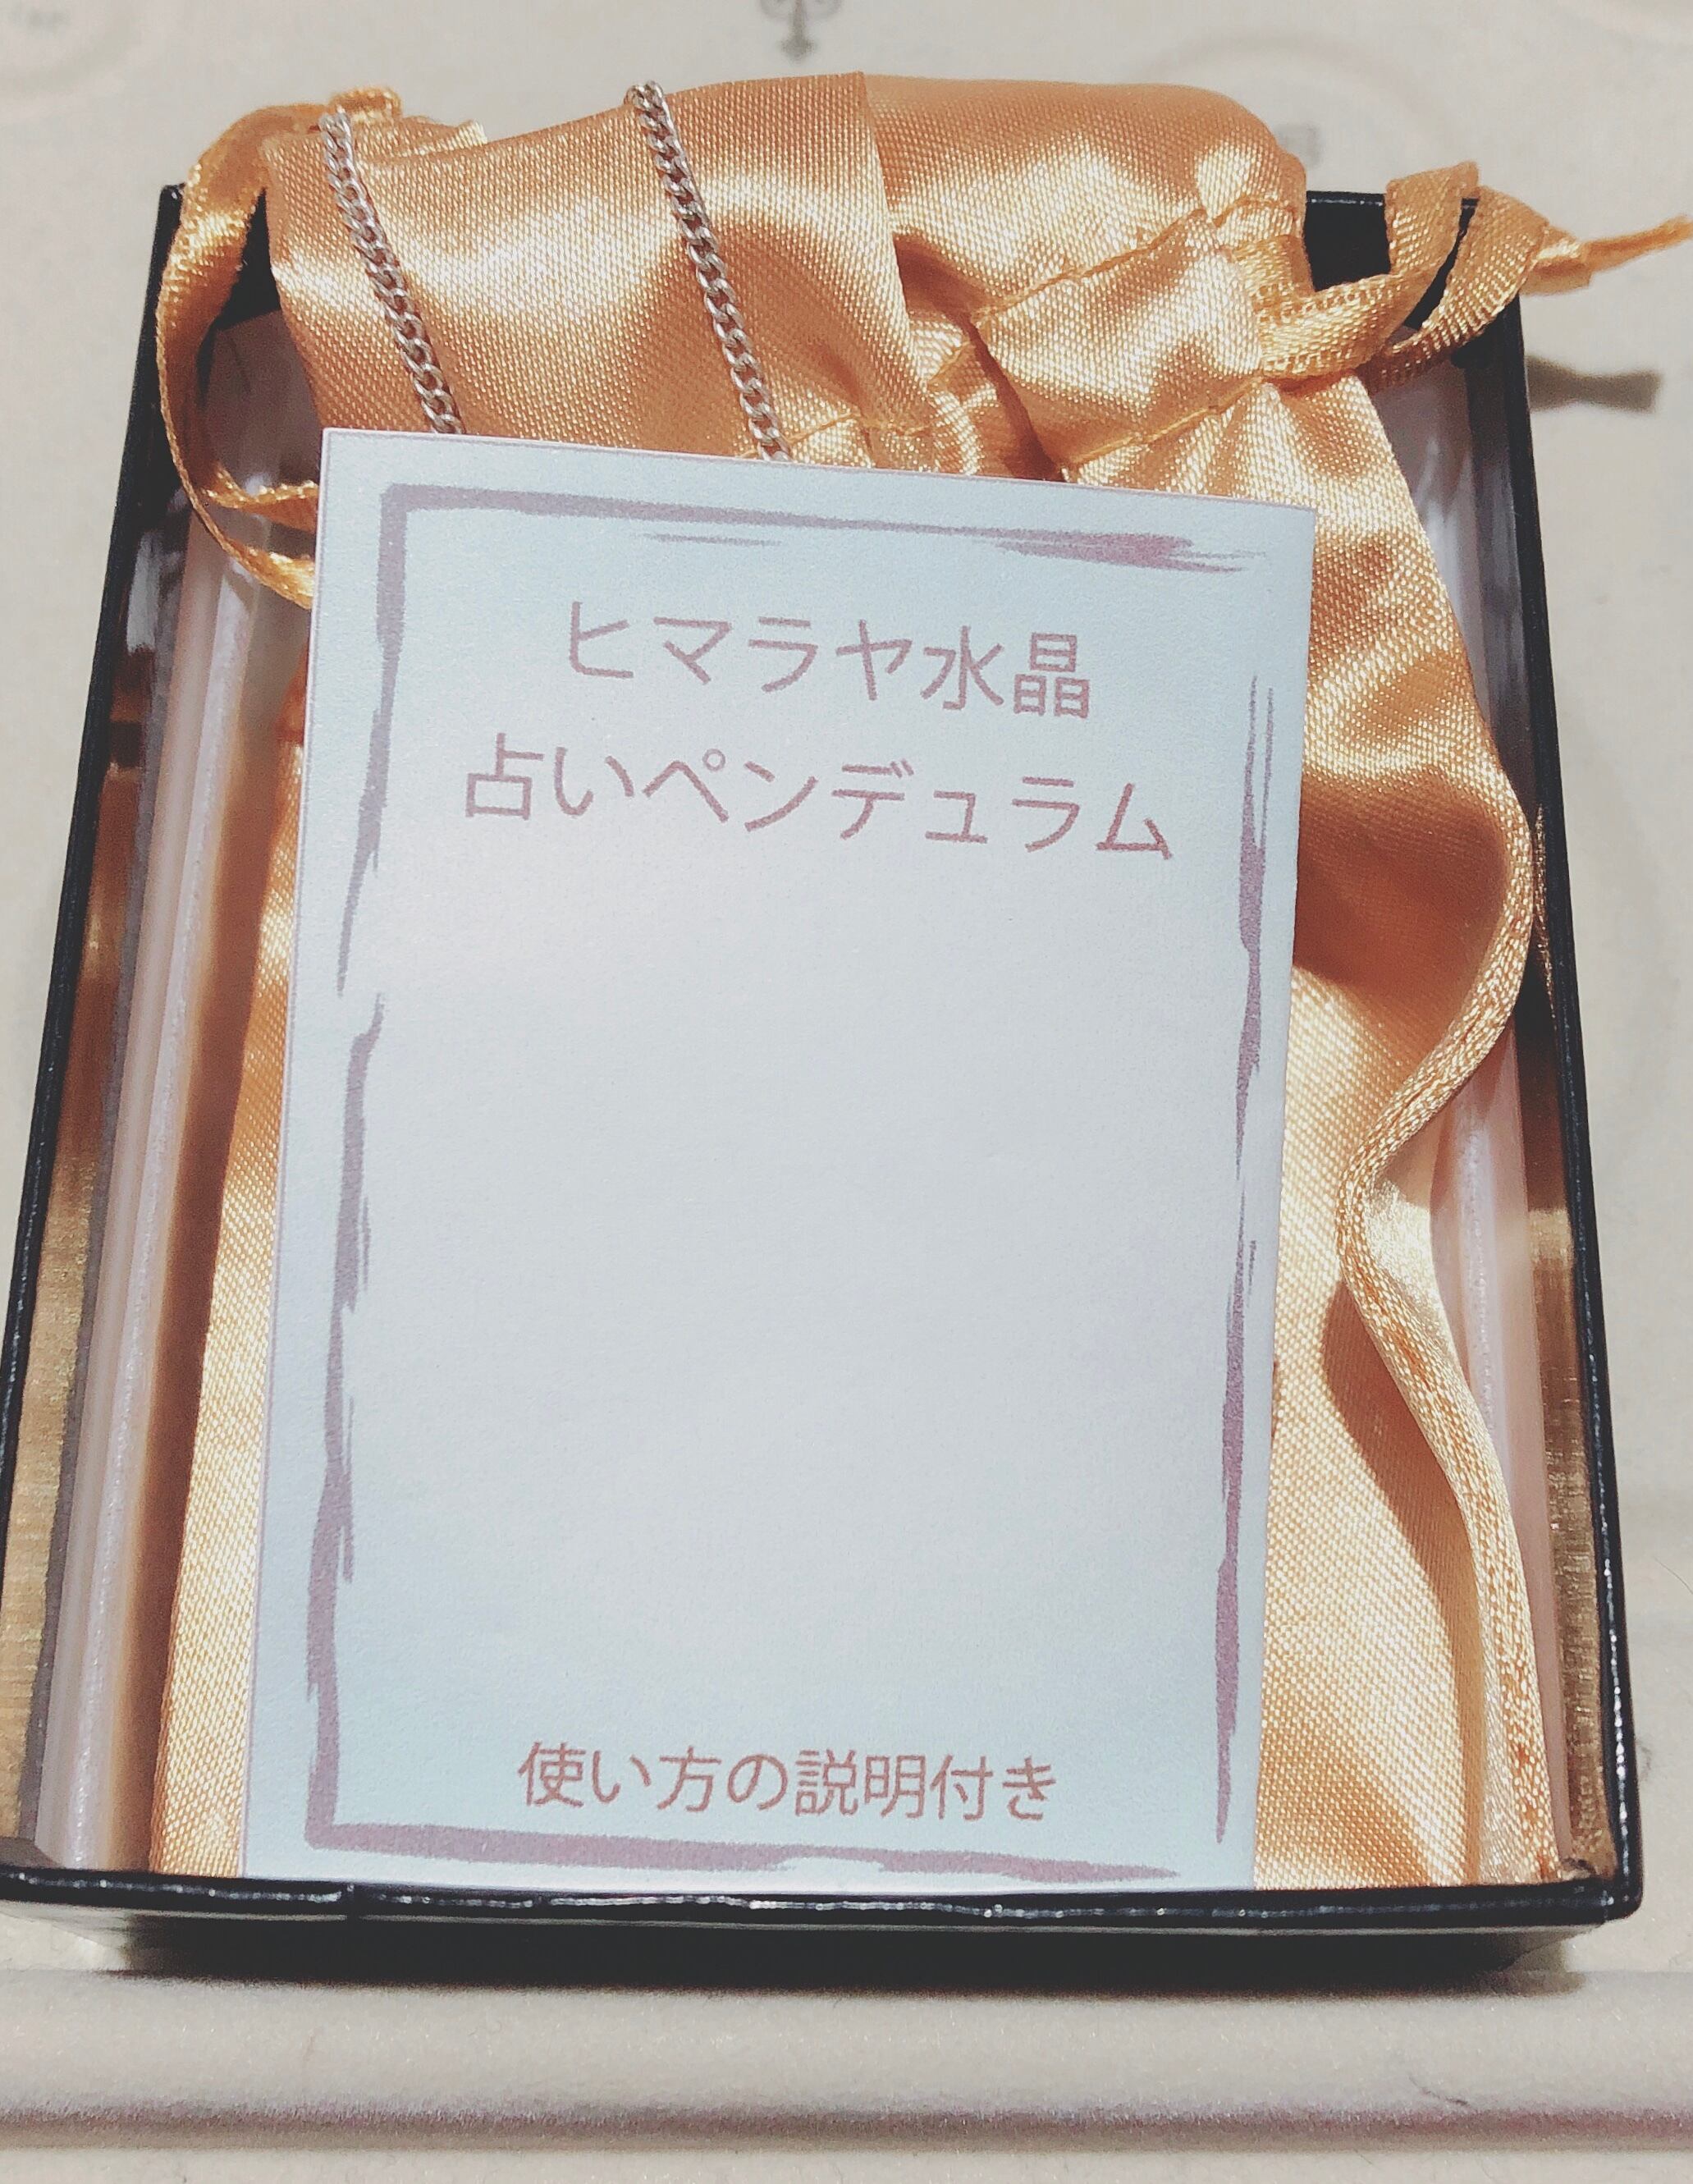 ヒマラヤ水晶
占いペンデュラム
使い方の説明付き